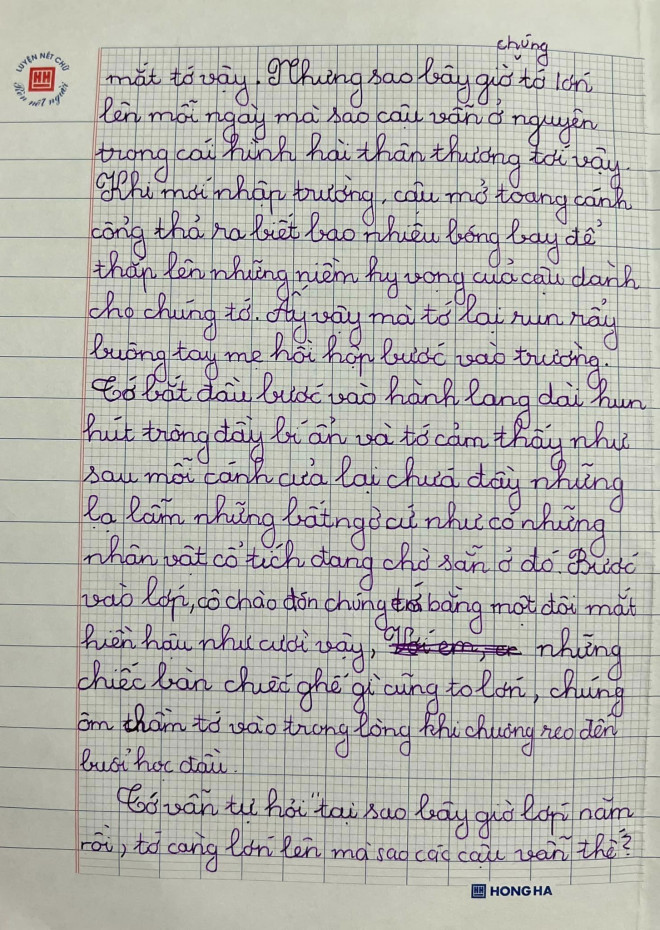 LUYỆN NÉT CHỮ
HH
Rèn nết người
chúng
mắt tớ vậy. Nhưng sao bây giờ tớ lớn
lên mỗi ngày mà sao cậu vẫn ở nguyên
trong cái hình hài thân thương tới vậy.
Khi mới nhập trường, cậu mở toang cánh
cổng thả ra biết bao nhiêu bóng bay để
thắp lên những niềm hy vọng của cậu dành
cho chúng tớ. Ấy vậy mà tớ lại run rẩy
buông tay mẹ hồi hộp bước vào trường.
Tớ bắt đầu bước vào hành lang dài hun
hút trông đầy bí ẩn và tớ cảm thấy như
sau mỗi cánh cửa lại chứa đầy những
lạ lẫm những bất ngờ cứ như có những
nhân vật cổ tích đang chờ sẵn ở đó. Bước
vào lớp, cô chào đón chúng tớ bằng một đôi mắt
hiền hậu như cười vậy, những
chiếc bàn chiếc ghế gì cũng to lớn, chúng
ôm thầm tớ vào trong lòng khi chuông reo đến
buổi học đầu.
Tớ vẫn tự hỏi "tại sao bây giờ lớp năm
rồi, tớ càng lớn lên mà sao các cậu vẫn thế?
HH HONG HA